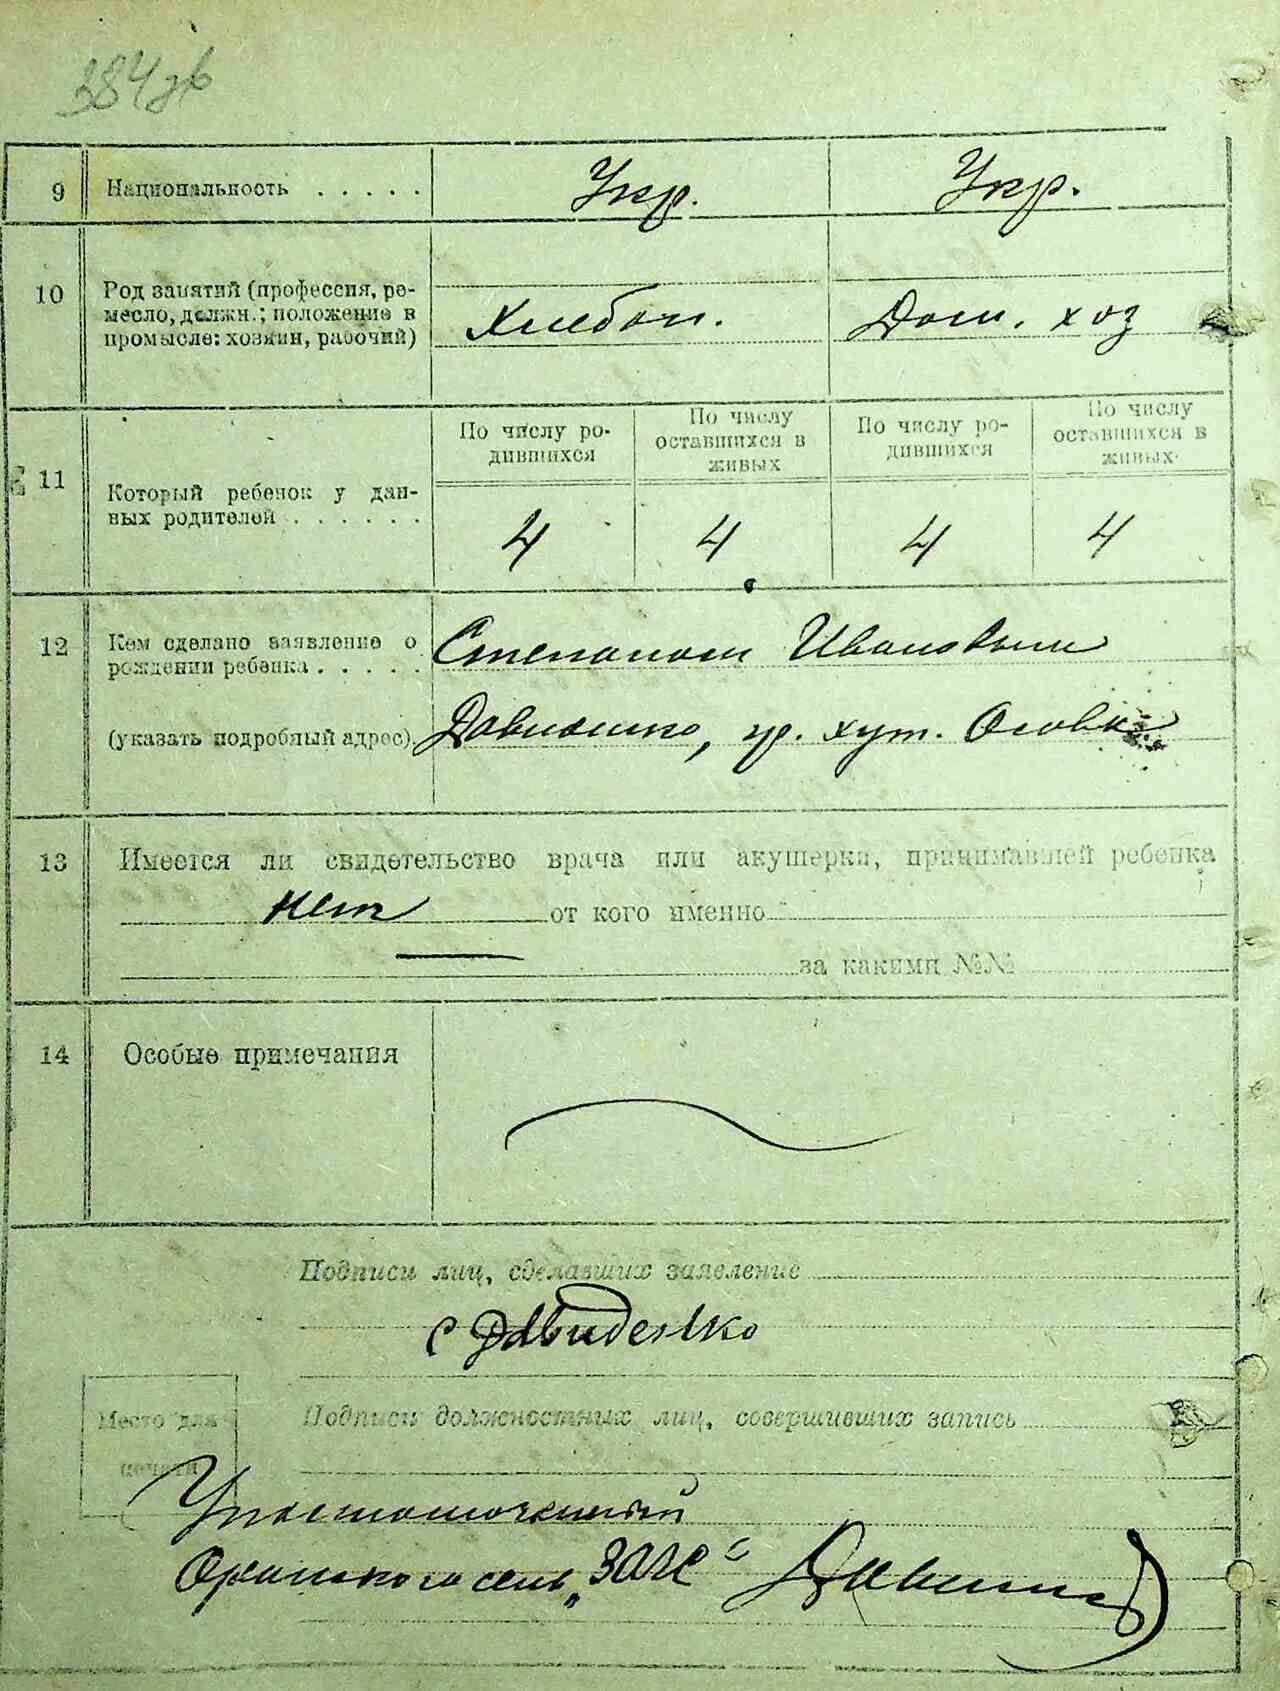 384 зв
9 Национальность . . . . . Укр. Укр.
10 Род занятий (профессия, ре-
месло, должн.; положение в
промысле: хозяин, рабочий) Хлебоп. Дом. хоз
По числу ро-
дившихся
По числу
оставшихся в
живых
По числу ро-
дившихся
По числу
оставшихся в
живых
11 Который ребенок у дан-
ных родителей . . . . . . 4 4 4 4
12 Кем сделано заявление о Степаном Ивановым
рождении ребенка . . . . .
(указать подробный адрес) , гр. хут. Осовка
13 Имеется ли свидетельство врача или акушерки, принимавшей ребенка
нет от кого именно
за какими №№
14 Особые примечания
Подписи лиц, сделавших заявление
С
Место для
печати
Подписи должностных лиц, совершивших запись
Уполномоченный
"ЗАГС"